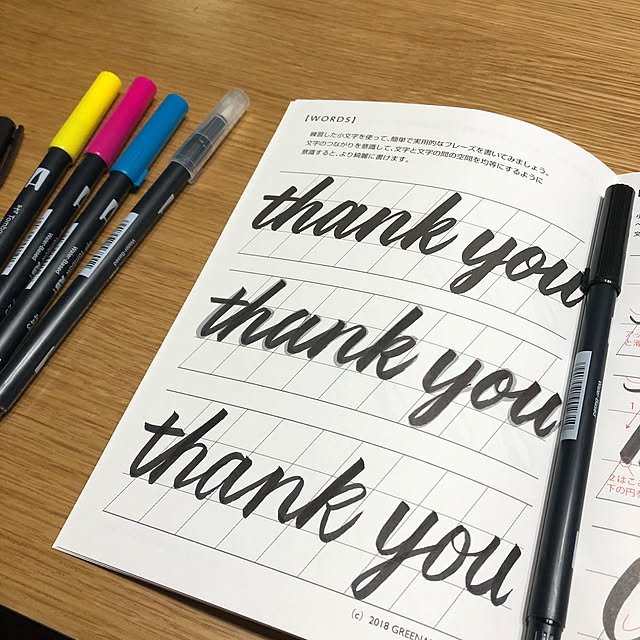 【WORDS】
練習した小文字を使って、簡単で実用的なフレーズを書いてみましょう。
文字のつながりを意識して、文字と文字の間の空間を均等にするように
意識すると、より綺麗に書けます。
thank you
thank you
thank you
(c) 2018 GREENA
Tombo
Water-Based
Water-Based
Water-Based
443
Water-Based
1
2はここ
下の円を